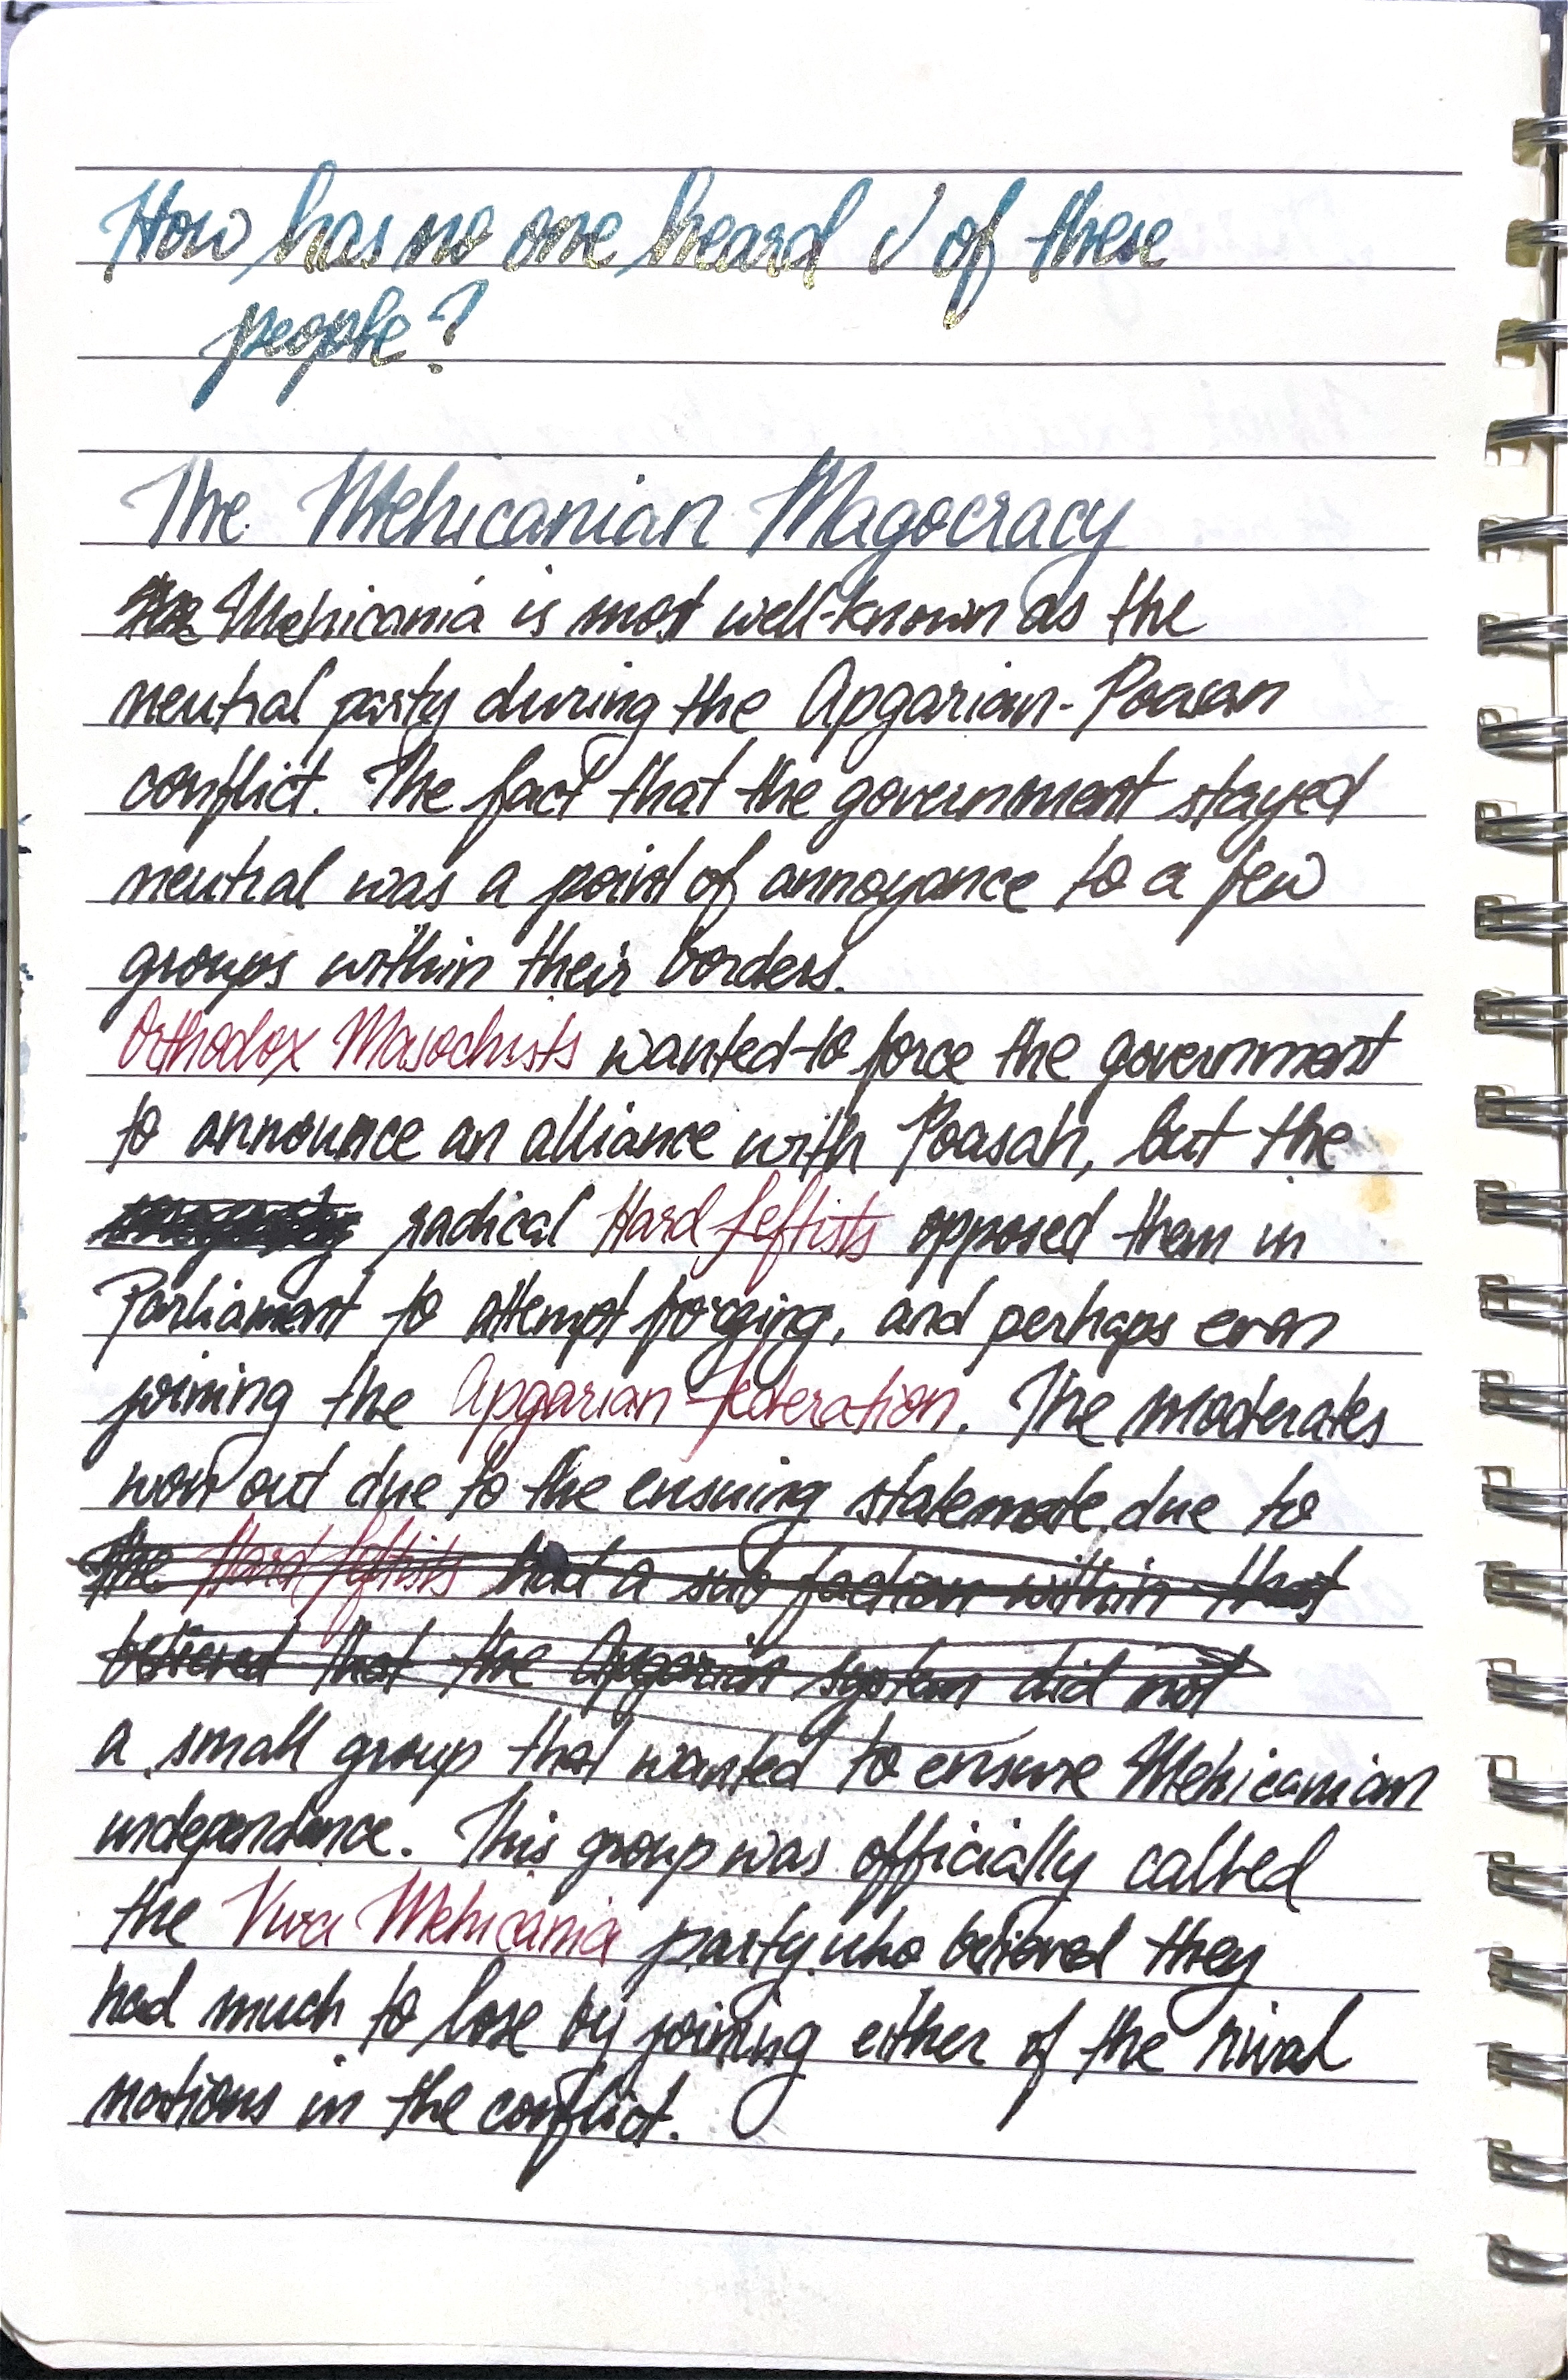 How has no one heard of these
people?
The Mehicanian Magocracy
the Mehicania is most well-known as the
neutral party during the Apgarian-Poasan
conflict. The fact that the government stayed
neutral was a point of annoyance to a few
groups within their borders.
Orthodox Masochists wanted to force the government
to announce an alliance with Poasah, but the
radical Hard Leftists opposed them in
Parliament to attempt forging, and perhaps even
joining the Apgarian Federation. The moderates
won out due to the ensuing stalemate due to
the Hard Leftists had a sub faction within that
believed that the Apgarian system did not
a small group that wanted to ensure Mehicanian
independence. This group was officially called
the Viva Mehicania party who believed they
had much to lose by joining either of the rival
nations in the conflict.